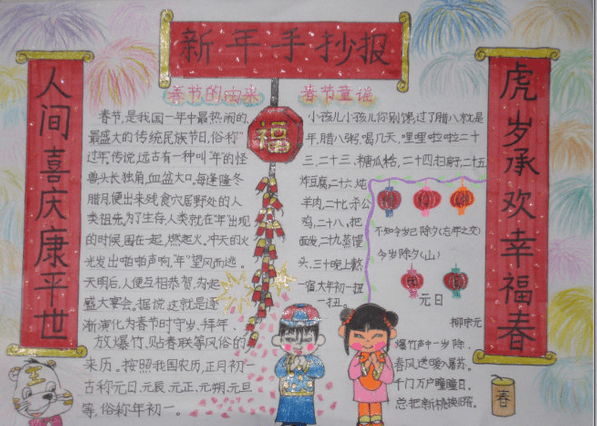 新年手抄报
人间喜庆康平世
虎岁承欢幸福春
福
春节的由来
春节，是我国一年中最热闹的，
最盛大的传统民族节日，俗称"
过年，传说，远古有一种叫"年"的怪
兽，头长独角，血盆大口。每逢隆冬
腊月，便出来残食穴居野处的人
类祖先。为了生存，人类就在"年"出现
的时候，围在一起，燃起火。冲天的火
光发出啪啪声响，"年"望风而逃。
天明后，人便互相恭贺，为起
盛大宴会。据说，这就是逐
渐演化为春节时守岁、拜年、
放爆竹、贴春联等风俗的
来历。按照我国农历，正月初一
古称元日、元辰、元正、元朔、元旦
等，俗称年初一。
春节童谣
小孩儿小孩儿你别馋，过了腊八就是
年，腊八粥，喝几天，哩哩啦啦二十
三，二十三，糖瓜粘，二十四扫房，二十五
炸豆腐，二十六，炖
羊肉，二十七，杀公
鸡，二十八，把
面发，二十九，蒸馒
头，三十晚上熬
一宿大年初一扭
一扭。
不知今岁已除夕(去年之交)
今岁除夕(山)
元日
柳宗元
爆竹声中一岁除，
春风送暖入屠苏。
千门万户曈曈日，
总把新桃换旧符。
春
王